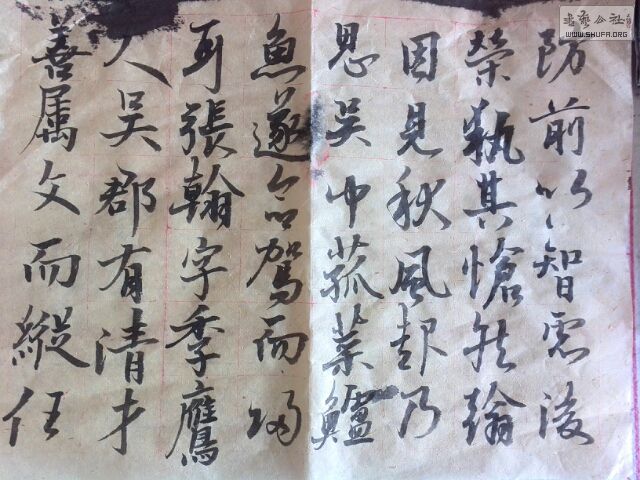 防前以智慮後
榮執其愴然翰
因見秋風起乃
思吳中菰菜鱸
魚遂命駕而歸
耳張翰字季鷹
人吳郡有清才
善属文而縱任
書藝公社
WWW.SHUFA.ORG